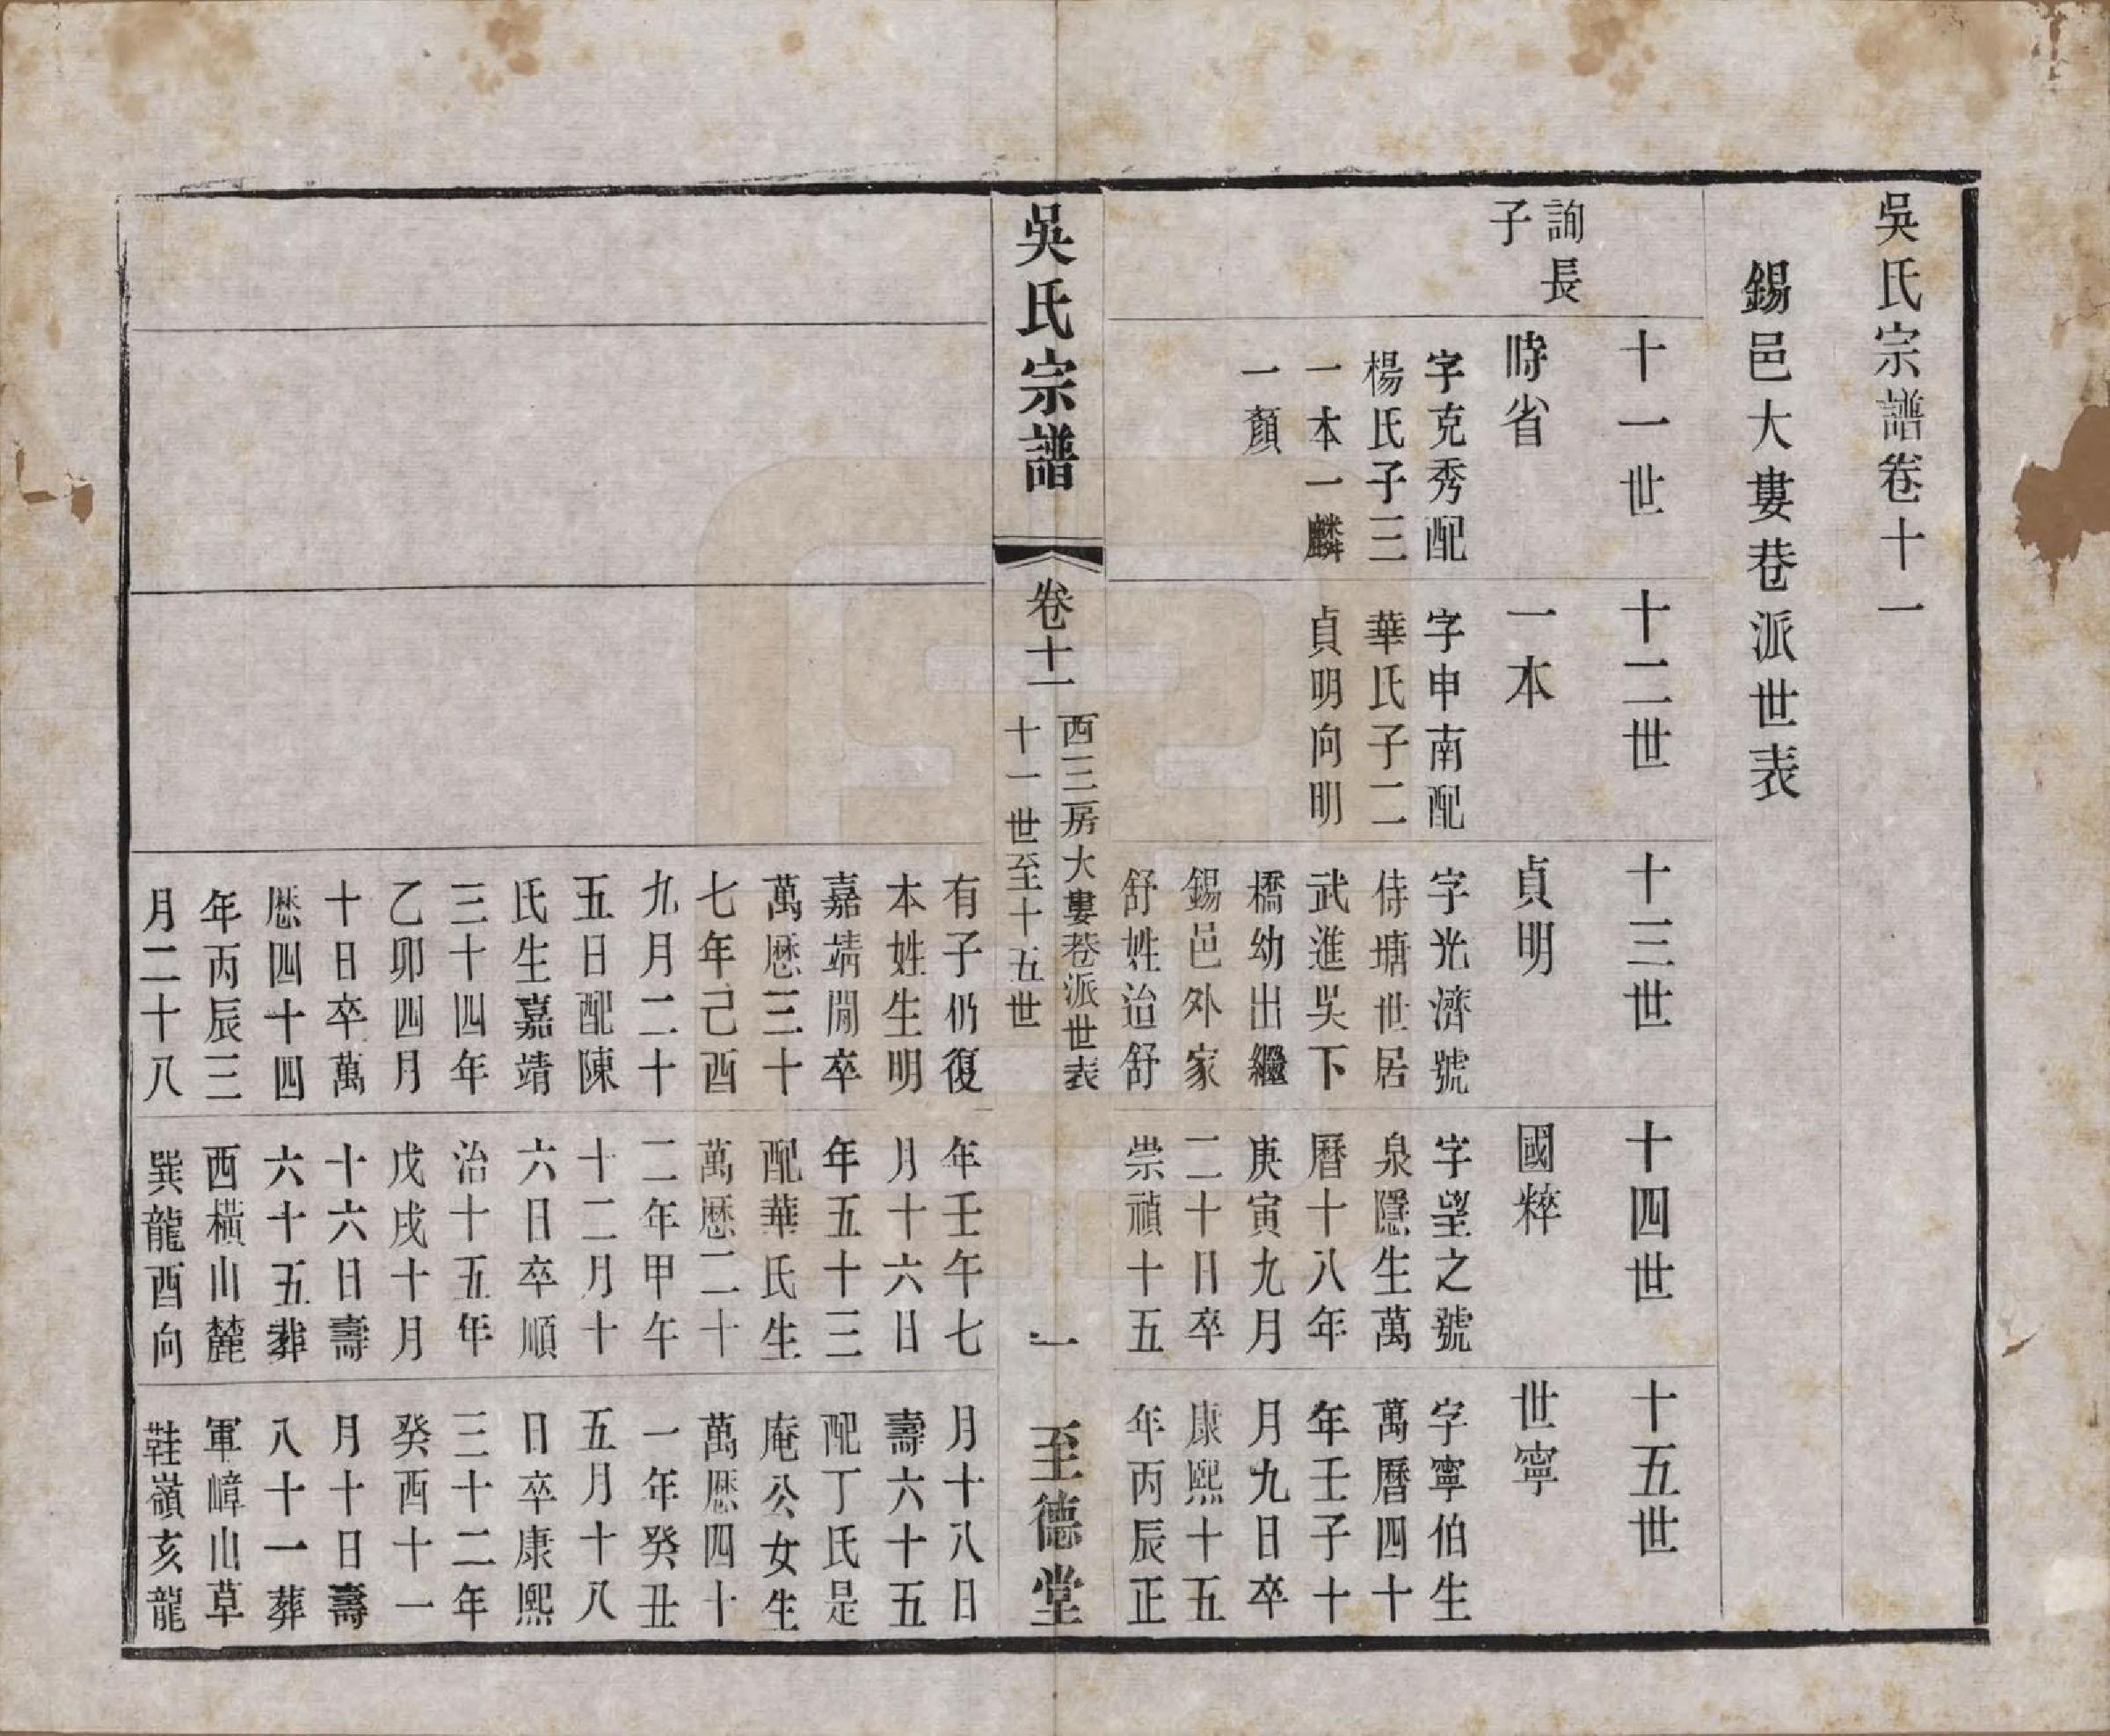 吳氏宗譜卷十一
錫邑大婁巷派世表
詢長
子
十一世
時省
字克秀配
楊氏子三
一本一麟
一顏
十二世
一本
字申南配
華氏子二
貞明向明
十三世
貞明
字光濟號
侍塘世居
武進吳下
橋幼出繼
錫邑外家
舒姓治舒
有子仍復
本姓生明
嘉靖閒卒
萬厯三十
七年己酉
九月二十
五日配陳
氏生嘉靖
三十四年
乙卯四月
十日卒萬
厯四十四
年丙辰三
月二十八
十四世
國粹
字望之號
泉隱生萬
曆十八年
庚寅九月
二十日卒
崇禎十五
年壬午七
月十六日
年五十三
配華氏生
萬厯二十
二年甲午
十二月十
六日卒順
治十五年
戊戌十月
十六日壽
六十五葬
西橫山麓
巽龍酉向
十五世
世寧
字寧伯生
萬曆四十
年壬子十
月九日卒
康熙十五
年丙辰正
月十八日
壽六十五
配丁氏是
庵公女生
萬厯四十
一年癸丑
五月十八
日卒康熙
三十二年
癸酉十一
月十日壽
八十一葬
軍嶂山草
鞋嶺亥龍
吳氏宗譜
卷十一
西三房大婁巷派世表
十一世至十五世
一
至德堂